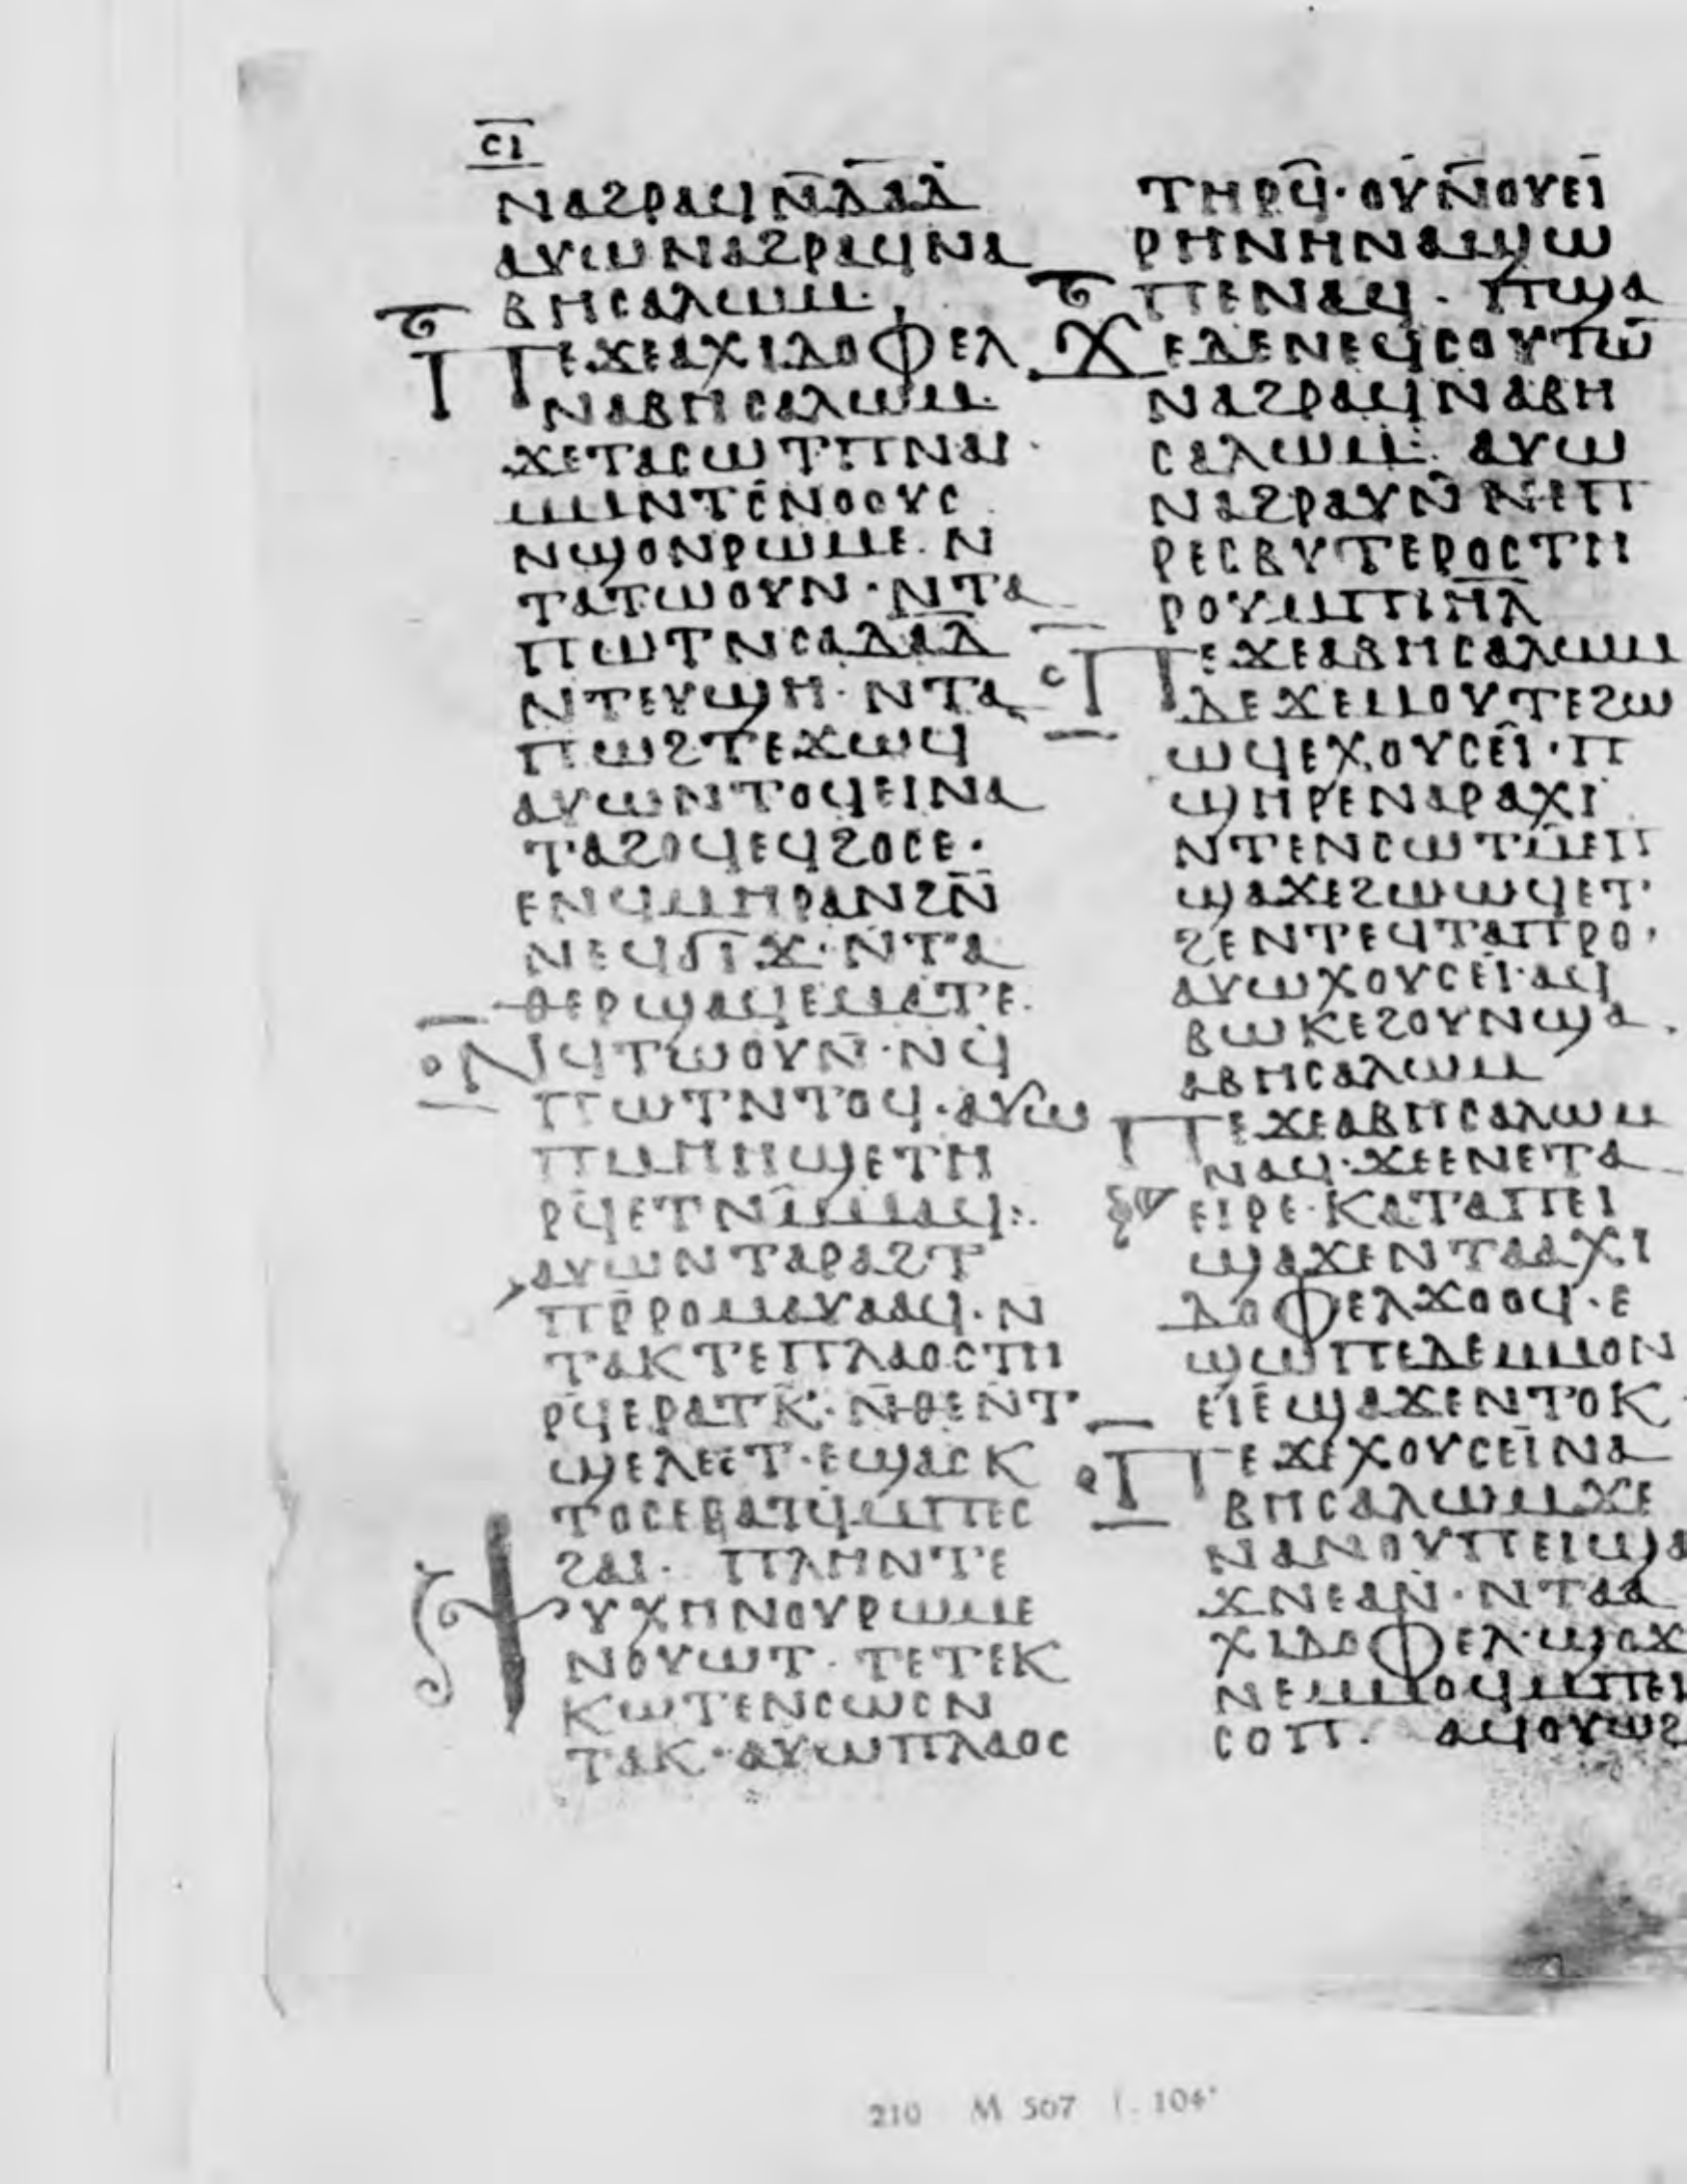 ⲥⲓ
ⲛⲁϩⲣⲁϥⲛ̄ⲇⲁⲇ
ⲁⲩⲱⲛⲁϩⲣⲁϥⲛⲁ
ⲃⲏⲥⲁⲗⲱⲙ·
ⲡⲉϫⲉⲁⲭⲓⲇⲟⲫⲉⲗ
ⲛⲁⲃⲏⲥⲁⲗⲱⲙ·
ϫⲉⲧⲁⲥⲱⲧⲡⲛⲁⲓ·
ⲙⲙⲛⲧⲥⲛⲟⲟⲩⲥ
ⲛϣⲟⲛⲣⲱⲙⲉ·ⲛ
ⲧⲁⲧⲱⲟⲩⲛ·ⲛⲧⲁ
ⲡⲱⲧⲛⲥⲁⲇⲁⲇ
ⲛⲧⲉⲩϣⲏ·ⲛⲧⲁ
ⲡⲱϩⲧⲉϫⲱϥ
ⲁⲩⲱⲛⲧⲟϥⲉⲓⲛⲁ
ⲧⲁϩⲟϥⲉϥϩⲟⲥⲉ·
ⲉⲛϥⲙⲏⲣⲁⲛϩⲛ̄
ⲛⲉϥϭⲓϫ·ⲛⲧⲁ
ⲑⲉⲣϣⲁϥⲉⲙⲁⲧⲉ·
ⲛϥⲧⲱⲟⲩⲛ·ⲛϥ
ⲡⲱⲧⲛⲧⲟϥ·ⲁⲩⲱ
ⲡⲙⲏⲏϣⲉⲧⲏ
ⲣϥⲉⲧⲛⲙⲙⲁϥ:·
ⲁⲩⲱⲛⲧⲁⲣⲁϩⲧ
ⲡⲣ̄ⲣⲟⲙⲁⲩⲁⲁϥ·ⲛ
ⲧⲁⲕⲧⲉⲡⲗⲁⲟⲥⲧⲏ
ⲣϥⲉⲣⲁⲧⲕ·ⲛ̄ⲑⲉⲛⲧ
ϣⲉⲗⲉⲉⲧ·ⲉϣⲁⲥⲕ
ⲧⲟⲥⲉⲣⲁⲧϥⲙⲡⲉⲥ
ϩⲁⲓ· ⲡⲗⲏⲛⲧⲉ
ⲯⲩⲭⲏⲛⲟⲩⲣⲱⲙⲉ
ⲛⲟⲩⲱⲧ·ⲧⲉⲧⲉⲕ
ⲕⲱⲧⲉⲛⲥⲱⲥⲛ
ⲧⲁⲕ·ⲁⲩⲱⲡⲗⲁⲟⲥ
ⲧⲏⲣϥ·ⲟⲩⲛ̄ⲟⲩⲉⲓ
ⲣⲏⲛⲏⲛⲁϣⲱ
ⲡⲉⲛⲁϥ· ⲡϣⲁ
ϫⲉⲇⲉⲛⲉϥⲥⲟⲩⲧⲱ̄
ⲛⲁϩⲣⲁϥⲛⲁⲃⲏ
ⲥⲁⲗⲱⲙ· ⲁⲩⲱ
ⲛⲁϩⲣⲁⲩⲛ̄ⲛⲉⲡ
ⲣⲉⲥⲃⲩⲧⲉⲣⲟⲥⲧⲏ
ⲣⲟⲩⲙⲡⲓⲏ̄ⲗ̄
ⲡⲉϫⲉⲁⲃⲏⲥⲁⲗⲱⲙ
ⲇⲉϫⲉⲙⲟⲩⲧⲉϩⲱ
ⲱϥⲉⲭⲟⲩⲥⲉⲓ̂·ⲡ
ϣⲏⲣⲉⲛⲁⲣⲁⲭⲓ
ⲛⲧⲉⲛⲥⲱⲧⲙ̄ⲉⲡ
ϣⲁϫⲉϩⲱⲱϥⲉⲧ
ϩⲉⲛⲧⲉϥⲧⲁⲡⲣⲟ·
ⲁⲩⲱⲭⲟⲩⲥⲉⲓ·ⲁϥ
ⲃⲱⲕⲉϩⲟⲩⲛϣⲁ
ⲁⲃⲏⲥⲁⲗⲱⲙ
ⲡⲉϫⲉⲁⲃⲏⲥⲁⲗⲱⲙ
ⲛⲁϥ·ϫⲉⲉⲛⲉⲧⲁ
ⲉⲓⲣⲉ·ⲕⲁⲧⲁⲡⲉⲓ
ϣⲁϫⲉⲛⲧⲁⲁⲭⲓ
ⲇⲟⲫⲉⲗϫⲟⲟϥ·ⲉ
ϣⲱⲡⲉⲇⲉⲙⲙⲟⲛ
ⲉⲓⲉϣⲁϫⲉⲛⲧⲟⲕ
ⲡⲉϫⲉⲭⲟⲩⲥⲉⲓⲛⲁ
ⲃⲏⲥⲁⲗⲱⲙϫⲉ
ⲛⲁⲛⲟⲩⲡⲉⲓϣⲁ
ϫⲛⲉⲁⲛ·ⲛⲧⲁⲁ
ⲭⲓⲇⲟⲫⲉⲗ·ϣⲟϫ
ⲛⲉⲙⲙⲟϥⲙⲡⲉⲓ
ⲥⲟⲡ· ⲁϥⲟⲩⲱϩ
210 M 567 f. 104ᵛ